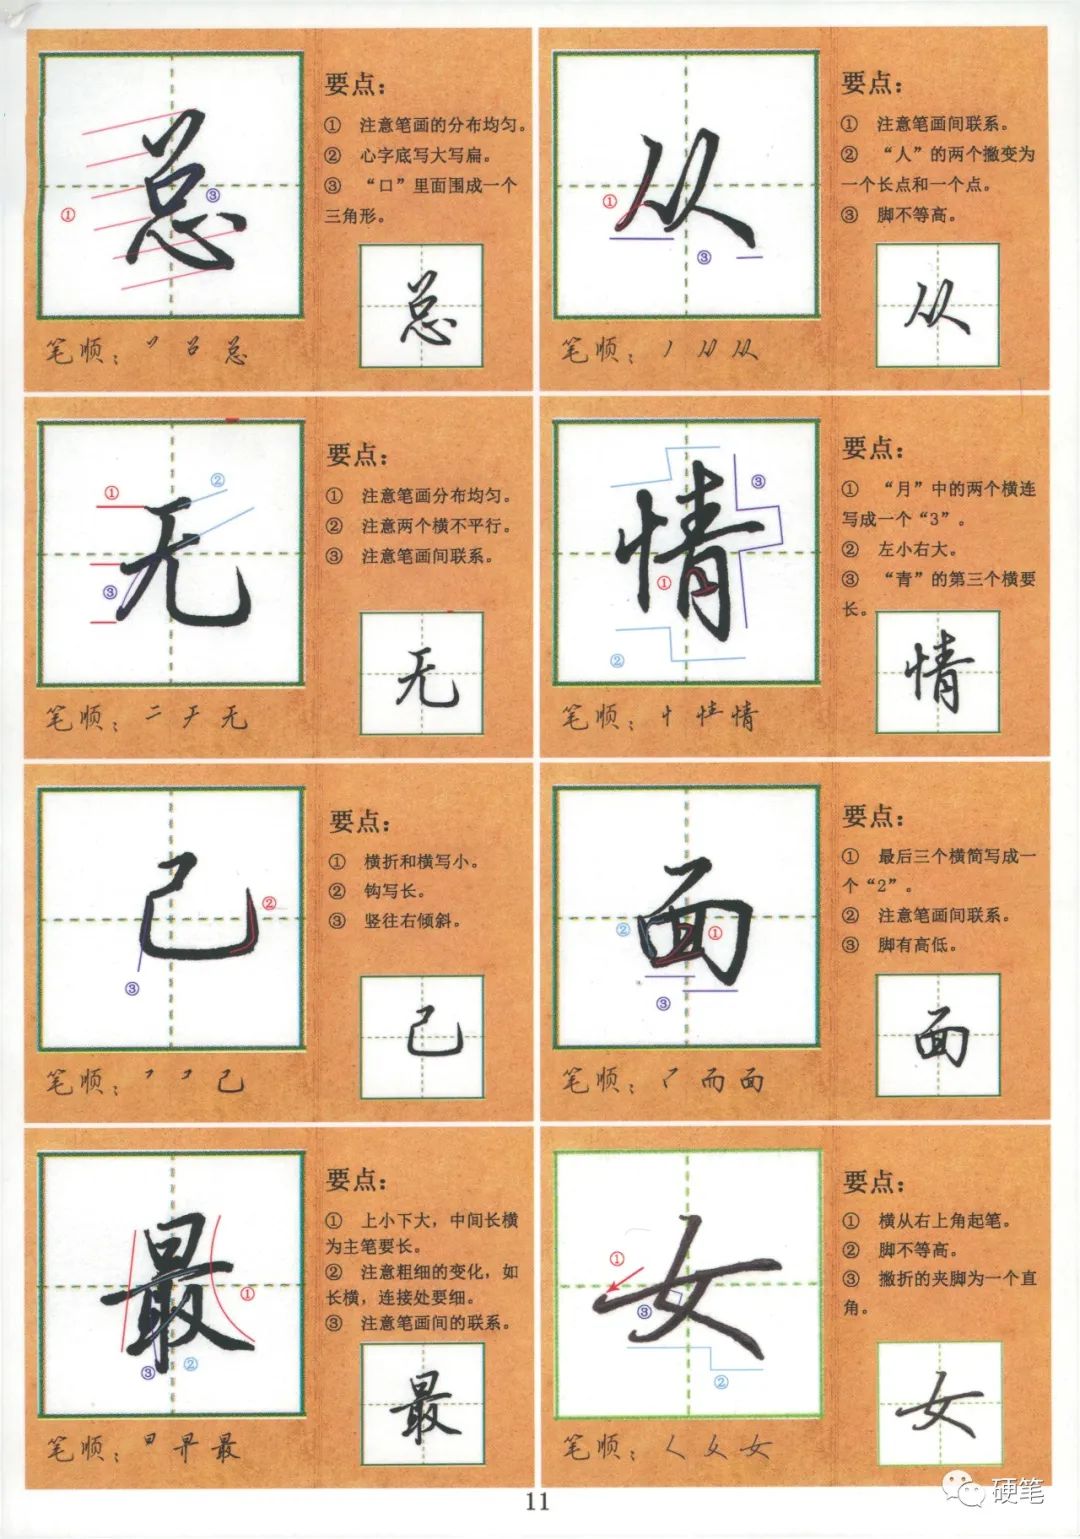 总
要点：
① 注意笔画的分布均匀。
② 心字底写大写扁。
③ “口”里面围成一个
三角形。
①
③
总
笔顺：丷 总
从
要点：
① 注意笔画间联系。
② “人”的两个撇变为
一个长点和一个点。
③ 脚不等高。
①
③
从
笔顺：丿 从
无
要点：
① 注意笔画分布均匀。
② 注意两个横不平行。
③ 注意笔画间联系。
①
②
③
无
笔顺：二 无
情
要点：
① “月”中的两个横连
写成一个“3”。
② 左小右大。
③ “青”的第三个横要
长。
③
①
②
情
笔顺：情
己
要点：
① 横折和横写小。
② 钩写长。
③ 竖往右倾斜。
②
③
己
笔顺：己
面
要点：
① 最后三个横简写成一
个“2”。
② 注意笔画间联系。
③ 脚有高低。
②
①
③
面
笔顺：而 面
最
要点：
① 上小下大，中间长横
为主笔要长。
② 注意粗细的变化，如
长横，连接处要细。
③ 注意笔画间的联系。
①
②
③
最
笔顺：最
女
要点：
① 横从右上角起笔。
② 脚不等高。
③ 撇折的夹脚为一个直
角。
①
③
②
女
笔顺：女
11
硬笔